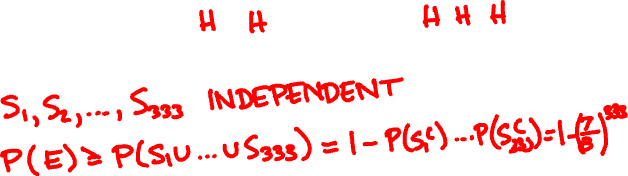 H H H H H
S₁, S₂, ..., S₃₃₃ INDEPENDENT
P(E) ≥ P(S₁ ∪ ... ∪ S₃₃₃) = 1 - P(S₁ᶜ) ... P(S₃₃₃ᶜ) = 1 - (7/8)³³³